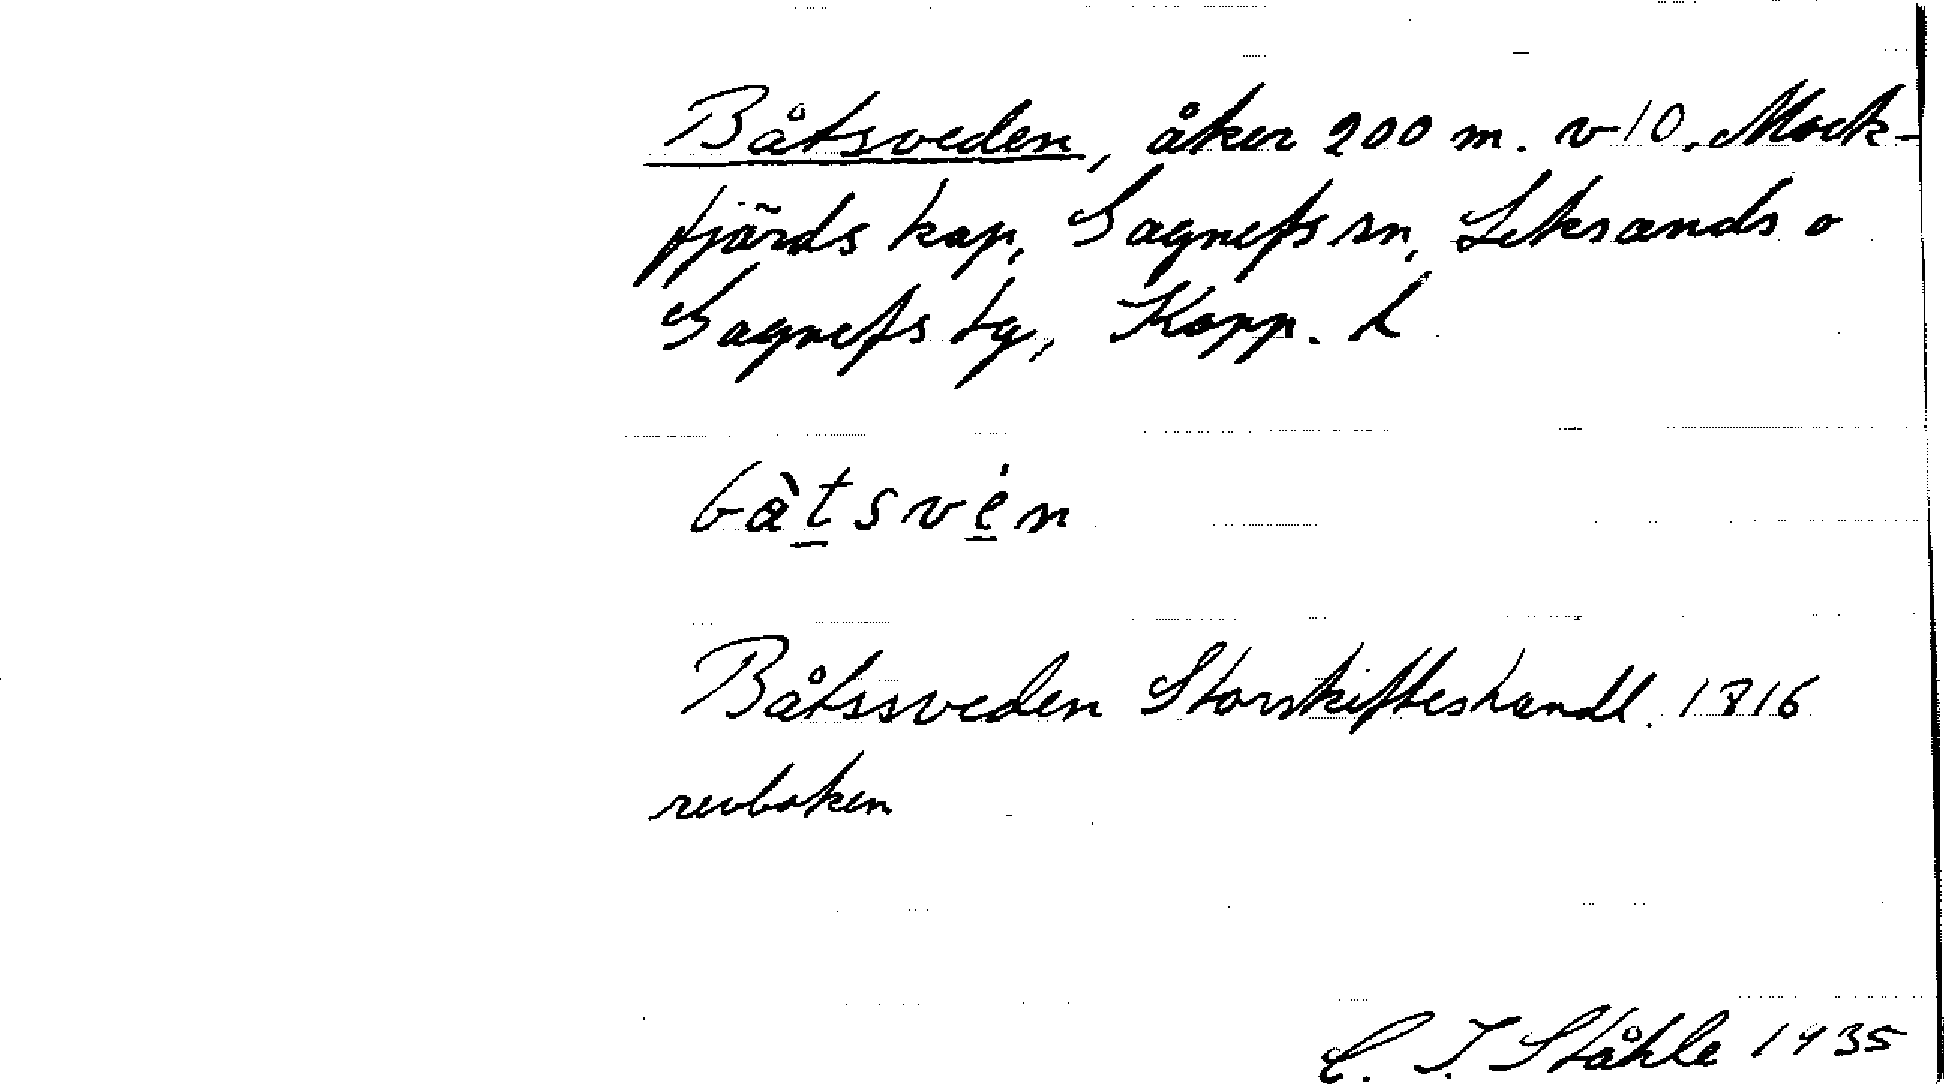 Båtsveden, åker 200 m. v 10, Mock-
fjärds kap, Gagnefs sn, Leksands o
Gagnefs tg, Kopp. L
bàtsvén
Båtssveden Storskifteshandl. 1816
revboken
C. I. Ståhle 1935